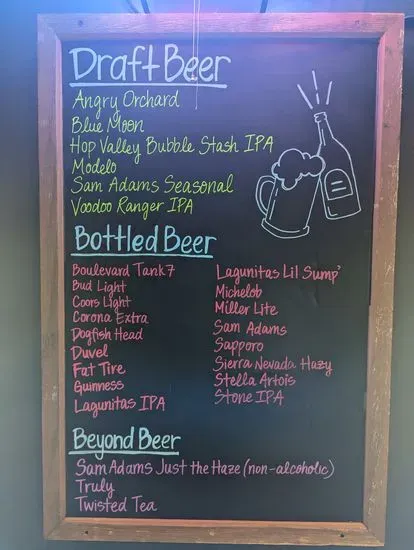 Draft Beer
Angry Orchard
Blue Moon
Hop Valley Bubble Stash IPA
Modelo
Sam Adams Seasonal
Voodoo Ranger IPA
Bottled Beer
Boulevard Tank 7
Bud Light
Coors Light
Corona Extra
Dogfish Head
Duvel
Fat Tire
Guinness
Lagunitas IPA
Lagunitas Lil Sump'
Michelob
Miller Lite
Sam Adams
Sapporo
Sierra Nevada Hazy
Stella Artois
Stone IPA
Beyond Beer
Sam Adams Just the Haze (non-alcoholic)
Truly
Twisted Tea